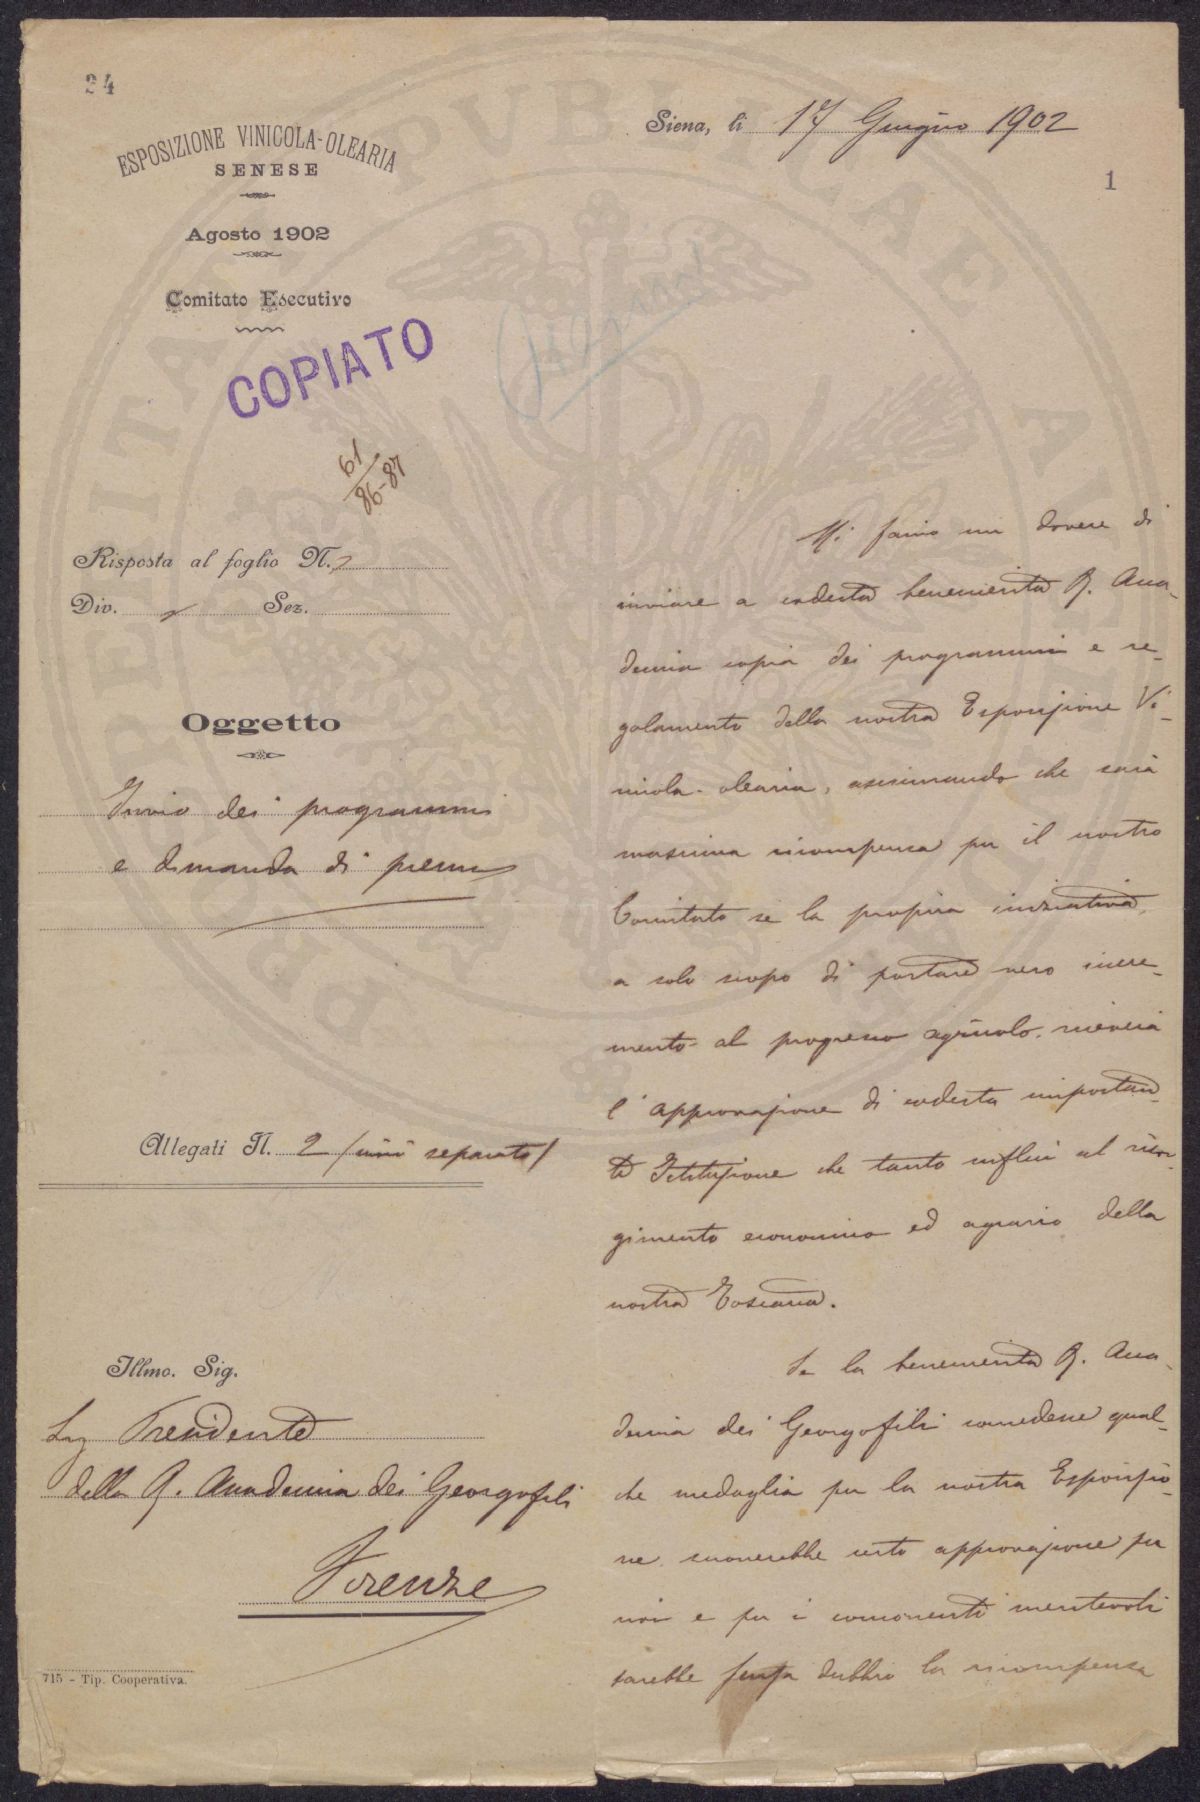 24
ESPOSIZIONE VINICOLA-OLEARIA
SENESE
Agosto 1902
Comitato Esecutivo
COPIATO
61
86-87
Risposta al foglio N.
Div. Sez.
Oggetto
Invio dei programmi
e dimanda di premi
Allegati N. 2 (invii separati)
Illmo. Sig.
Sig Presidente
della R. Accademia dei Georgofili
Firenze
715 - Tip. Cooperativa.
Siena, li 17 Giugno 1902
1
Mi faccio un dovere di
inviare a codesta benemerita R. Acca-
demia copia dei programmi e re-
golamento della nostra Esposizione Vi-
nicola-olearia, assicurando che sarà
massima ricompensa per il nostro
Comitato se la propria iniziativa,
a solo scopo di portare vero incre-
mento al progresso agricolo, riceverà
l'approvazione di codesta importan-
te Istituzione che tanto influì al risor-
gimento economico ed agrario della
nostra Toscana.
Se la benemerita R. Acca-
demia dei Georgofili concedesse qual-
che medaglia per la nostra Esposizio-
ne, suonerebbe certo approvazione per
noi e per i concorrenti meritevoli
sarebbe senza dubbio la ricompensa